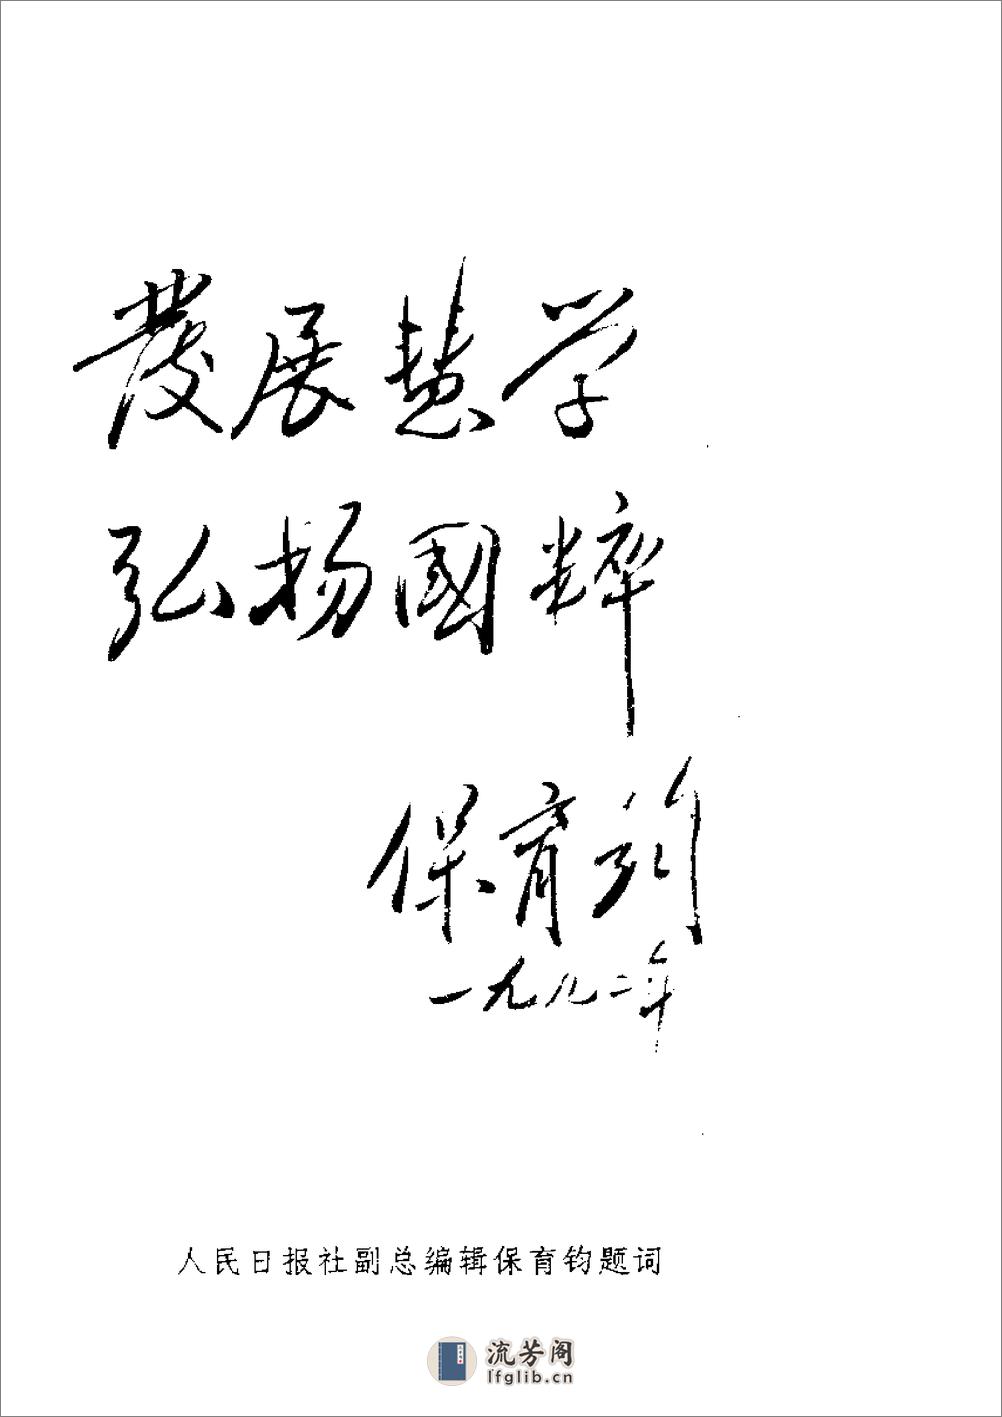 發展慧学
弘扬國粹
保育钧
一九九二年
人民日报社副总编辑保育钧题词
流芳阁
lfglib.cn